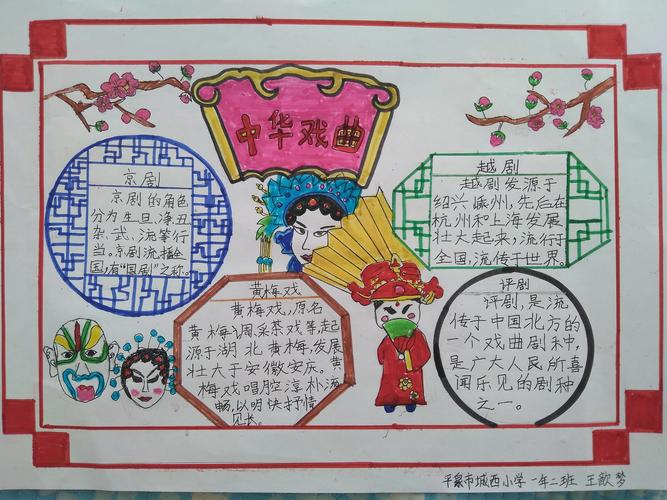 中华戏曲
京剧
京剧的角色
分为生旦、净丑
杂、武、流等行
当。京剧流播全
国,有"国剧"之称。
越剧
越剧发源于
绍兴嵊州,先后在
杭州和上海发展
壮大起来,流行于
全国,流传于世界。
黄梅戏
黄梅戏,原名
黄梅调采茶戏等,起
源于湖北黄梅,发展
壮大于安徽安庆。黄
梅戏唱腔淳朴流
畅,以明快抒情
见长。
评剧
评剧,是流
传于中国北方的
一个戏曲剧种,
是广大人民所喜
闻乐见的剧种
之一。
平泉市城西小学一年二班 王歆梦